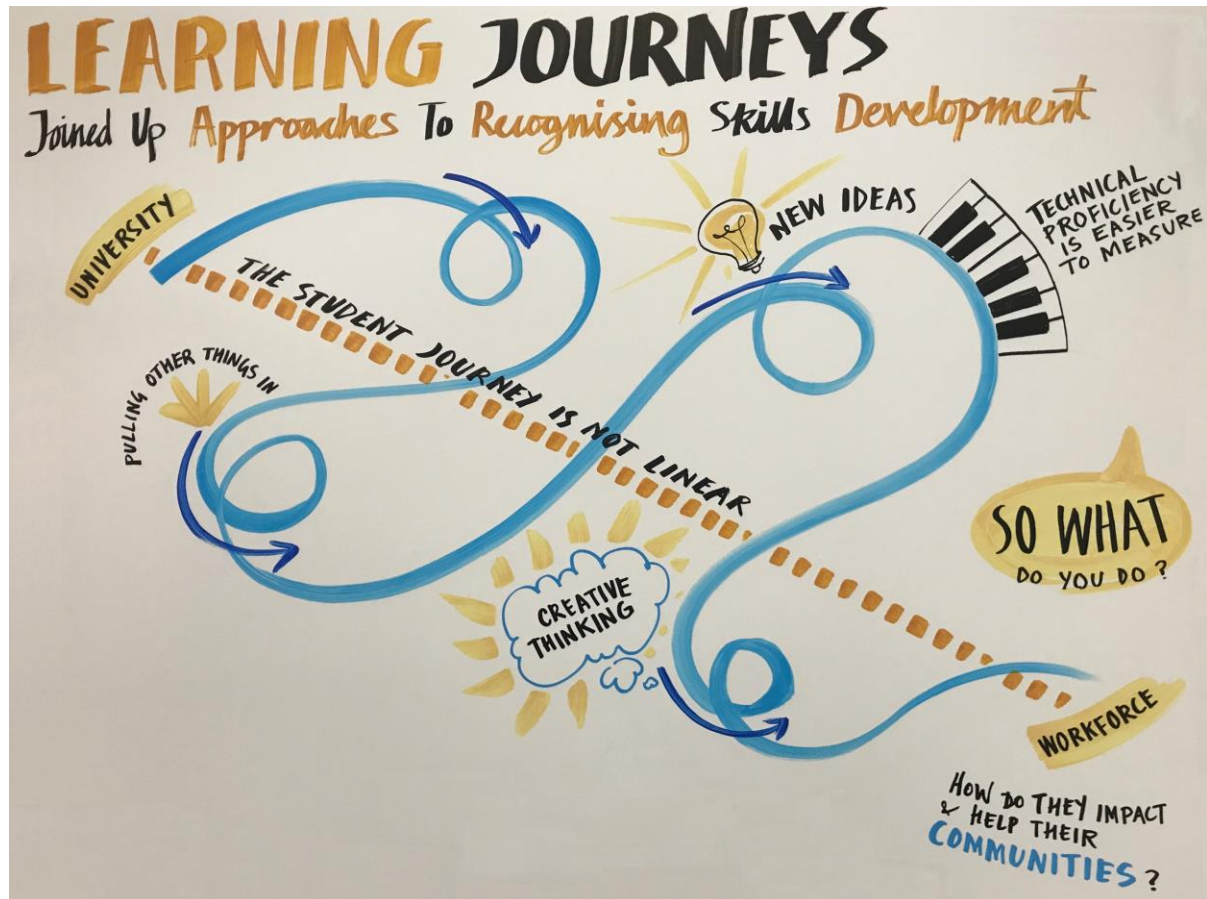 LEARNING JOURNEYS
Joined Up Approaches To Recognising Skills Development
UNIVERSITY
THE STUDENT JOURNEY IS NOT LINEAR
PULLING OTHER THINGS IN
NEW IDEAS
TECHNICAL
PROFICIENCY
IS EASIER
TO MEASURE
CREATIVE
THINKING
SO WHAT
DO YOU DO?
WORKFORCE
HOW DO THEY IMPACT
& HELP THEIR
COMMUNITIES?